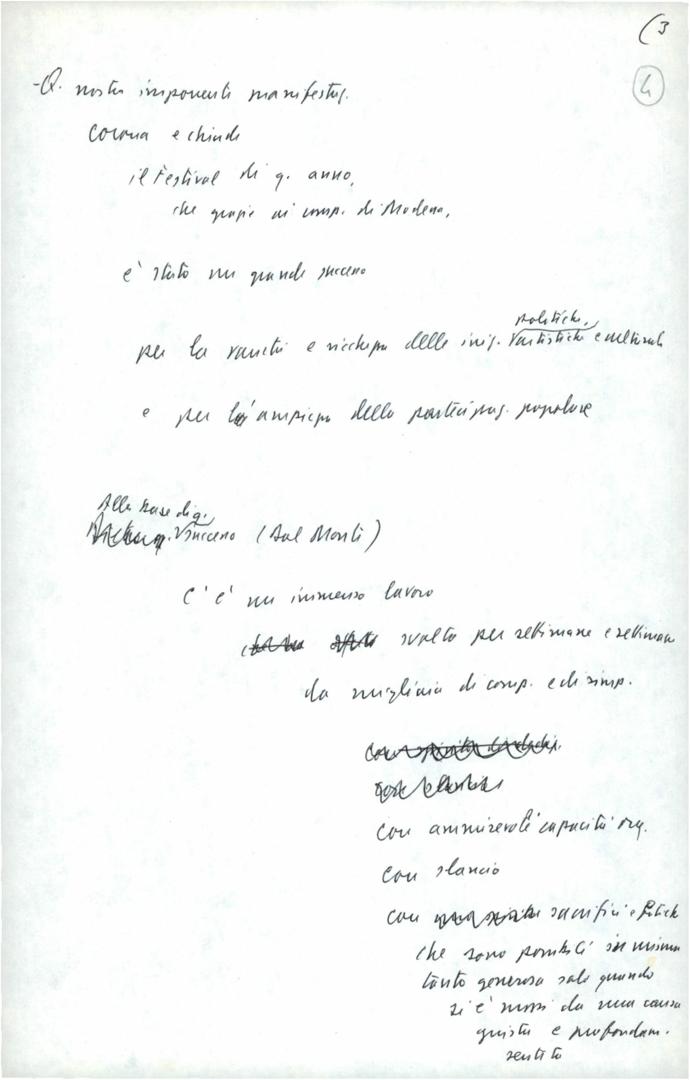 (3
4
-Q. nostra imponenti manifestaz.
corona e chiude
il Festival di q. anno,
che grazie ai comp. di Modena,
è stato un grande successo
politiche,
per la varietà e ricchezza delle iniz. artistiche e culturali
e per l'ampiezza della partecipaz. popolare
Alla base di q.
successo (dal Monti)
C'è un immenso lavoro
svolto per settimane e settimane
da migliaia di comp. e di simp.
con ammirevole capacità org.
con slancio
con sacrifici e fatiche
che sono possibili in misura
tanto generosa solo quando
si è mossi da una causa
giusta e profondam.
sentita